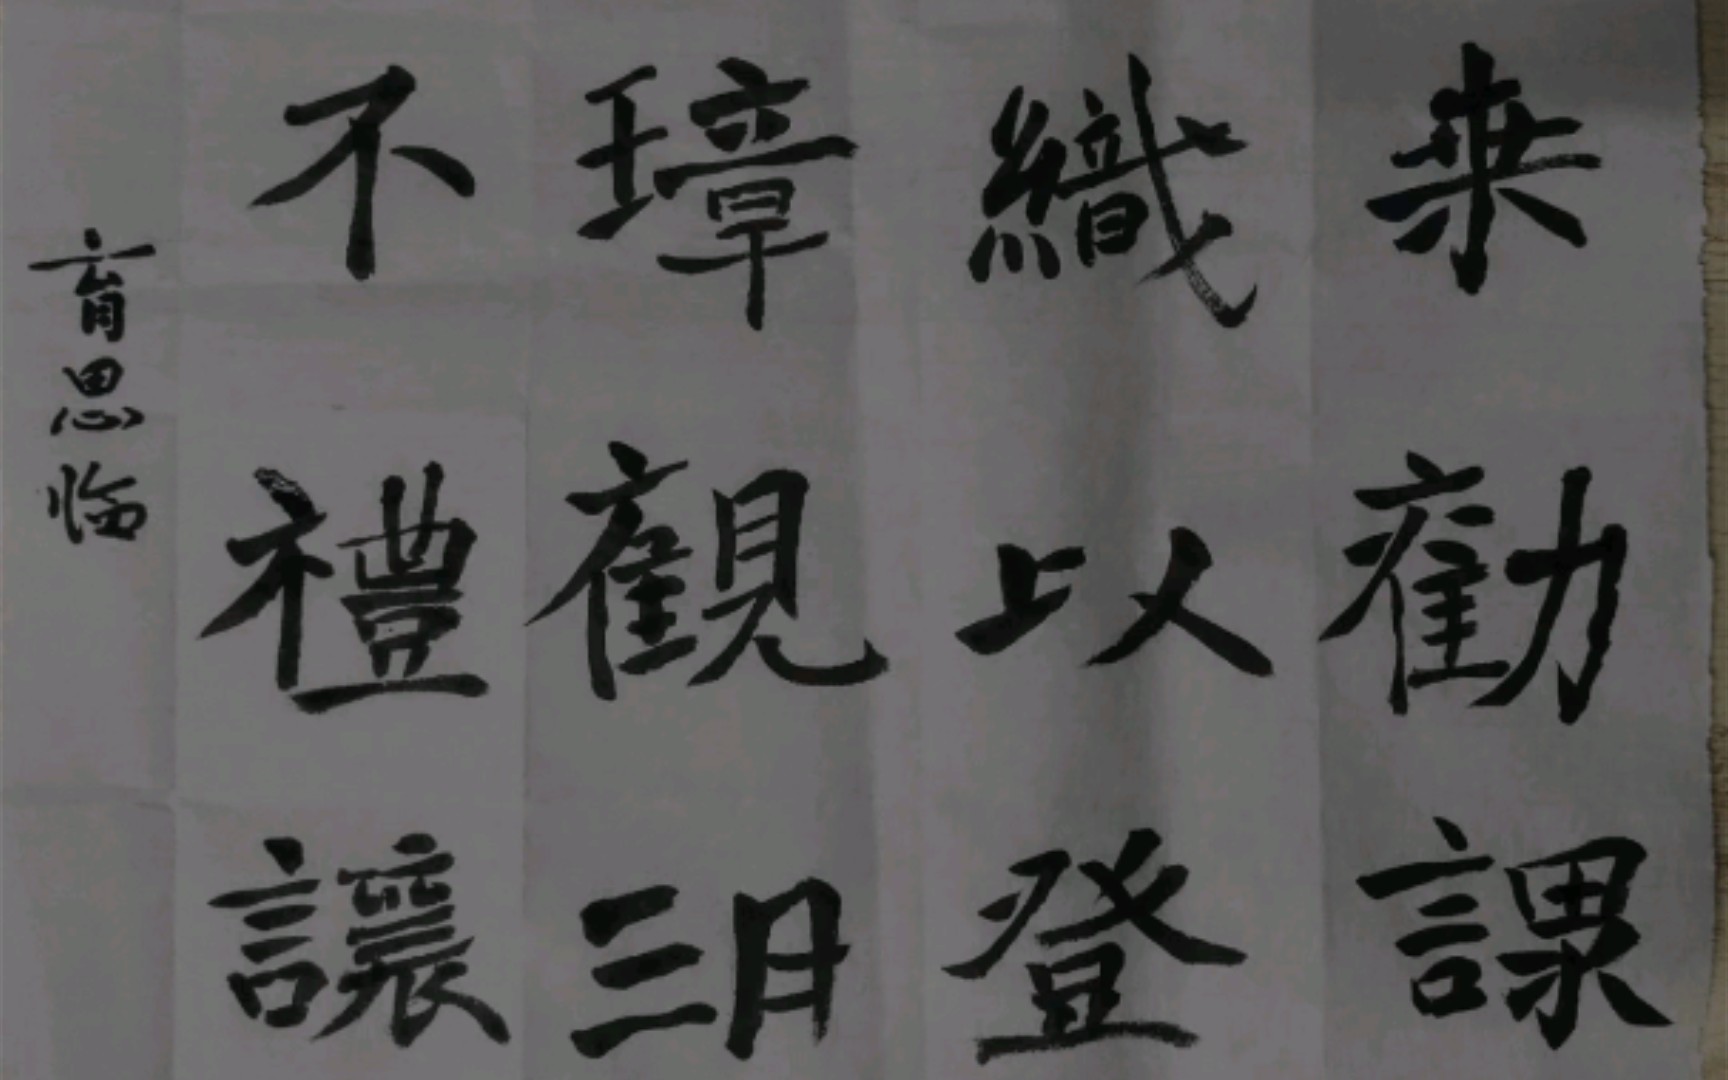 桒勸課
織以登
璋觀
不禮讓
育思临